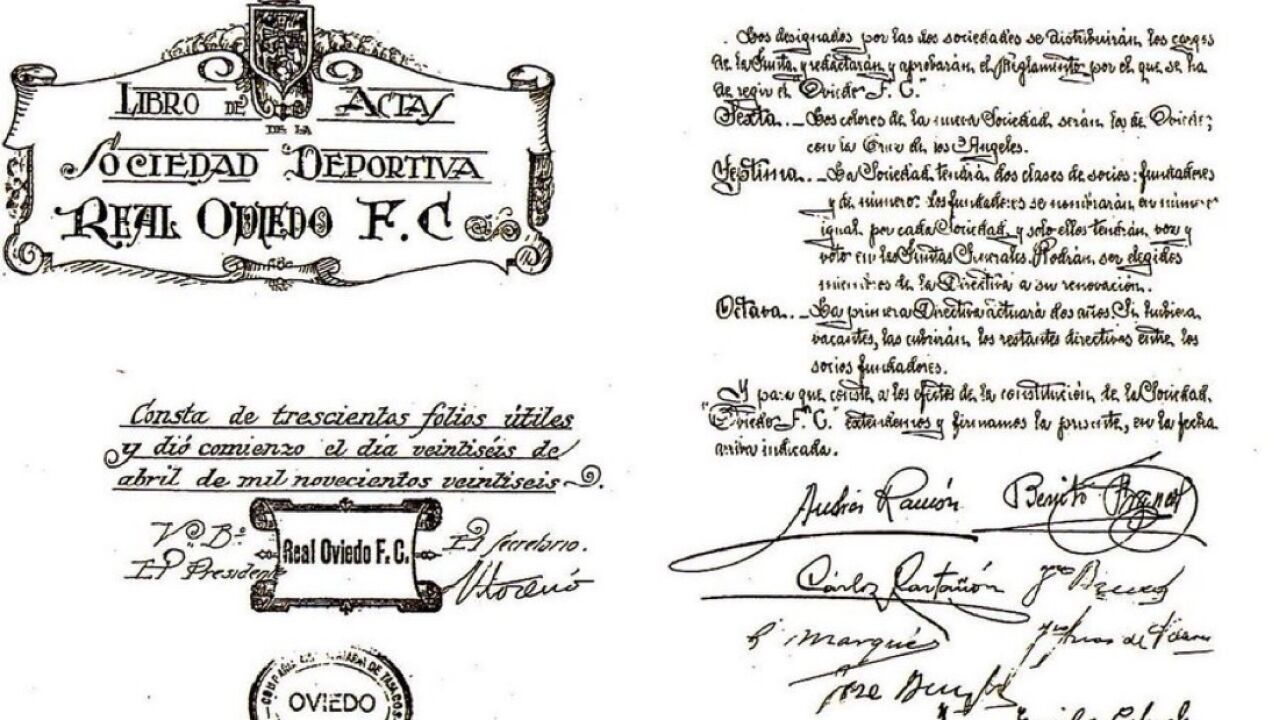 LIBRO DE ACTAS
DE LA
SOCIEDAD DEPORTIVA
REAL OVIEDO F.C
Consta de trescientos folios útiles
y dió comienzo el día veintiséis de
abril de mil novecientos veintiseis
Vº Bº
El Presidente
Real Oviedo F. C.
El Secretario.
OVIEDO
Los designados por las dos sociedades se distribuirán los cargos
de la Junta y redactarán y aprobarán el Reglamento por el que se ha
de regir el "Oviedo F. C."
Sexta.- Los colores de la nueva Sociedad serán los de Oviedo;
con la Cruz de los Angeles.
Septima.- La Sociedad tendrá dos clases de socios: fundadores
y de número: los fundadores se nombrarán en número
igual por cada Sociedad, y solo ellos tendrán voz y
voto en las Juntas Generales. Podrán ser elegidos
miembros de la Directiva a su renovación.
Octava.- La primera Directiva actuará dos años. Si hubiera
vacantes, las cubrirán los restantes directivos entre los
socios fundadores.
Y para que conste a los efectos de la constitución de la Sociedad
"Oviedo F. C." extendemos y firmamos la presente, en la fecha
arriba indicada.
Ramón
Benito
Cárlos
Marqués
Jose